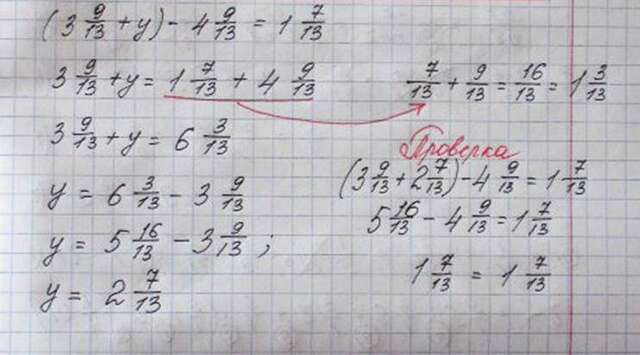 (3 9/13 + y) - 4 9/13 = 1 7/13
3 9/13 + y = 1 7/13 + 4 9/13
3 9/13 + y = 6 3/13
y = 6 3/13 - 3 9/13
y = 5 16/13 - 3 9/13 ;
y = 2 7/13
7/13 + 9/13 = 16/13 = 1 3/13
Проверка
(3 9/13 + 2 7/13) - 4 9/13 = 1 7/13
5 16/13 - 4 9/13 = 1 7/13
1 7/13 = 1 7/13